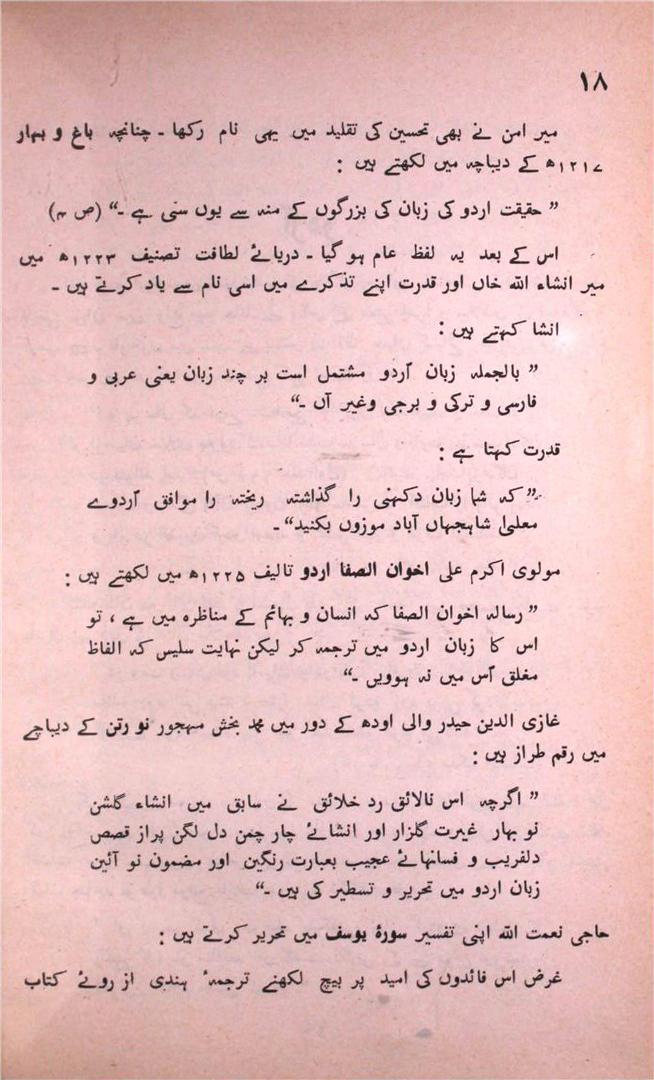 ۱۸
میر امن نے بھی تحسین کی تقلید میں یہی نام رکھا ۔ چنانچہ باغ و بہار
۱۲۱۷ھ کے دیباچہ میں لکھتے ہیں :
” حقیقت اردو کی زبان کی بزرگوں کے منہ سے یوں سنی ہے ۔“ (ص ۴)
اس کے بعد یہ لفظ عام ہو گیا ۔ دریائے لطافت تصنیف ۱۲۲۳ھ میں
میر انشاء اللہ خاں اور قدرت اپنے تذکرے میں اسی نام سے یاد کرتے ہیں ۔
انشا کہتے ہیں :
” بالجملہ زبان اُردو مشتمل است بر چند زبان یعنی عربی و
فارسی و ترکی و برجی وغیر آں ۔“
قدرت کہتا ہے :
”کہ شما زبان دکھنی را گذاشتہ ریختہ را موافق اُردوے
معلیٰ شاہجہاں آباد موزوں بکنید“ ۔
مولوی اکرم علی اخوان الصفا اردو تالیف ۱۲۲۵ھ میں لکھتے ہیں :
” رسالہ اخوان الصفا کہ انسان و بہائم کے مناظرہ میں ہے ، تو
اس کا زبان اردو میں ترجمہ کر لیکن نہایت سلیس کہ الفاظ
مغلق اُس میں نہ ہوویں ۔“
غازی الدین حیدر والی اودھ کے دور میں محمد بخش مہجور نو رتن کے دیباچے
میں رقم طراز ہیں :
” اگرچہ اس نالائق رد خلائق نے سابق میں انشاء گلشن
نو بہار غیرت گلزار اور انشائے چار چمن دل لگن پراز قصص
دلفریب و فسانہائے عجیب بعبارت رنگین اور مضمون نو آئین
زبان اردو میں تحریر و تسطیر کی ہیں ۔“
حاجی نعمت اللہ اپنی تفسیر سورۂ یوسف میں تحریر کرتے ہیں :
غرض اس فائدوں کی امید پر بیچ لکھنے ترجمہٴ ہندی از روئے کتاب